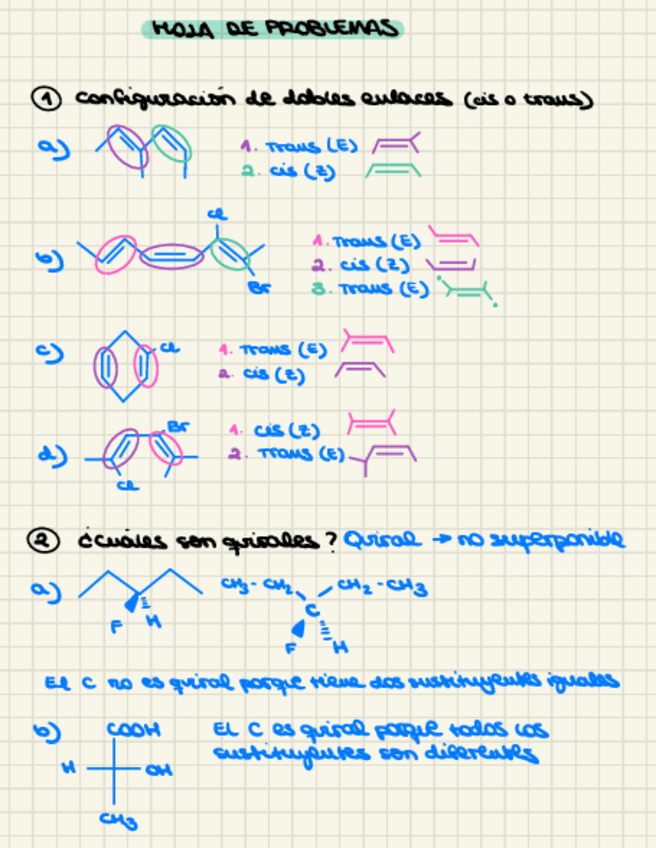 HOJA DE PROBLEMAS
① configuración de dobles enlaces (cis o trans)
a) 1. Trans (E)
2. cis (Z)
b) Cl Br 1. Trans (E)
2. cis (Z)
3. Trans (E)
c) Cl 1. Trans (E)
2. cis (Z)
d) Br Cl 1. cis (Z)
2. Trans (E)
② ¿cuáles son quirales? Quiral → no superponible
a) F H CH3-CH2 CH2-CH3
C
F H
El C no es quiral porque tiene dos sustituyentes iguales
b) COOH El C es quiral porque todos los
sustituyentes son diferentes
H OH
CH3